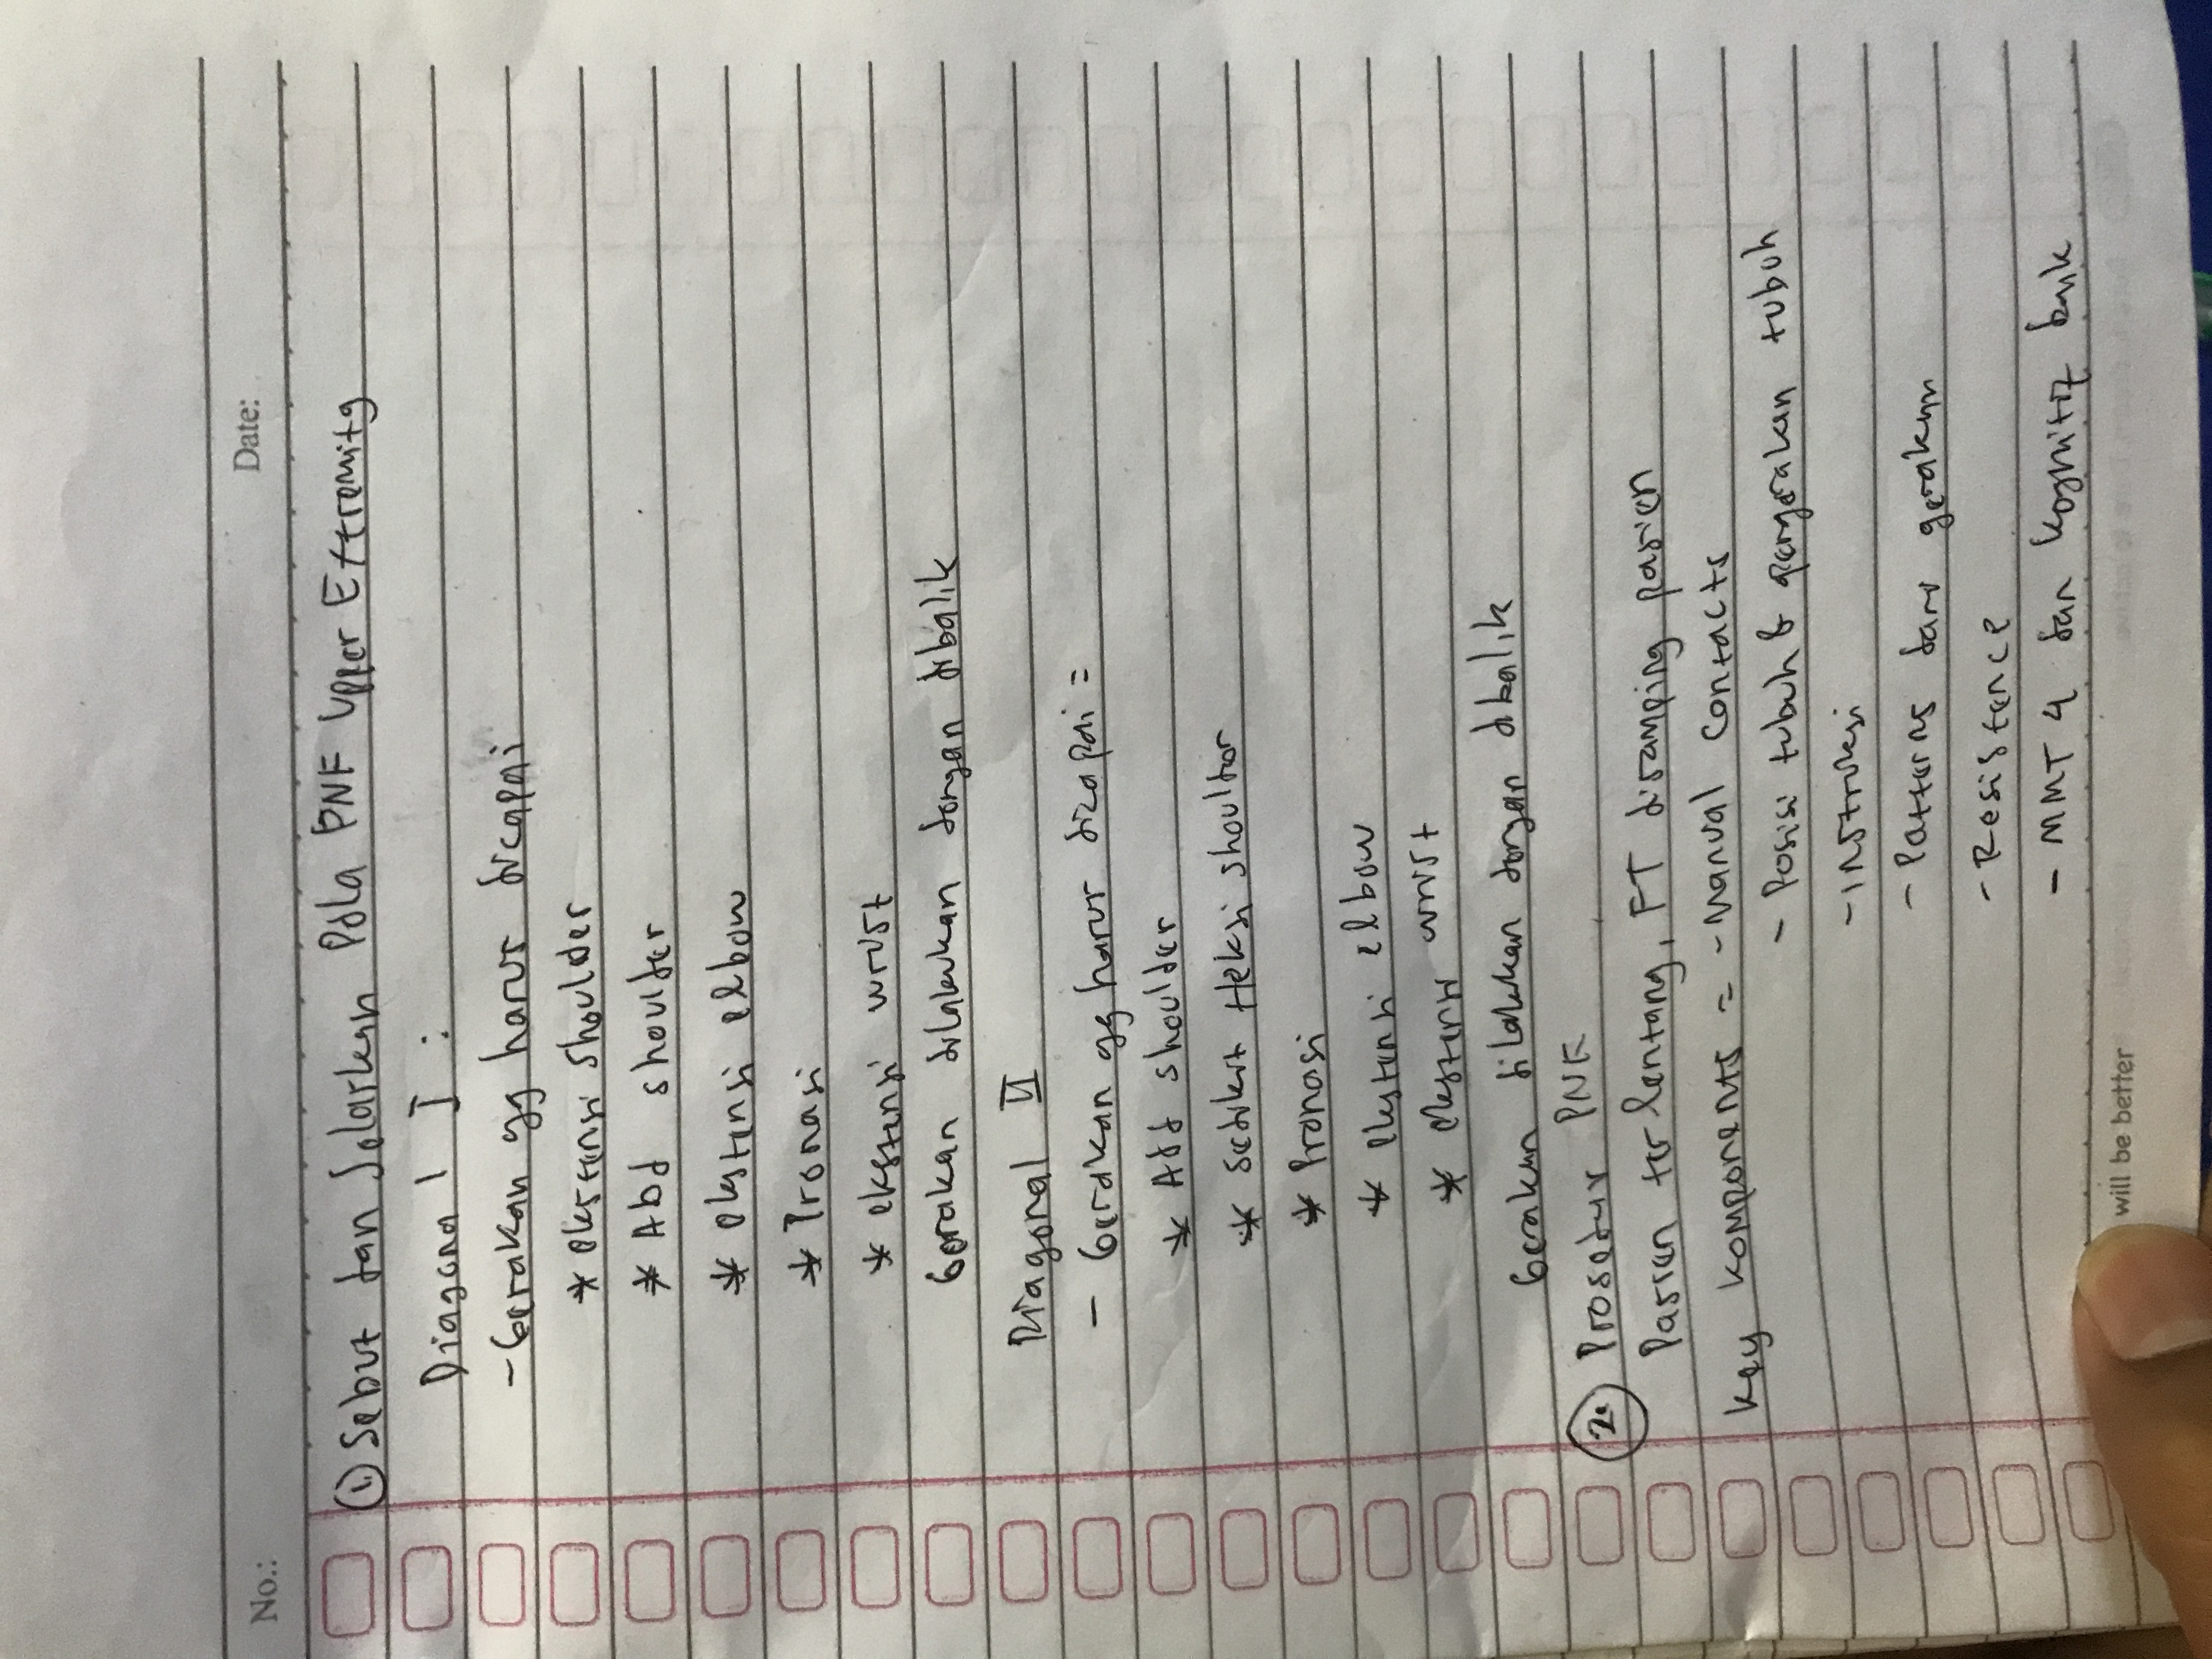 No.:
Date:
① Sebut dan Jelaskan Pola PNF Upper Extremity
Diagonal I :
- Gerakan yg harus dicapai
* ekstensi shoulder
* Abd shoulder
* ekstensi elbow
* Pronasi
* ekstensi wrist
Gerakan dilakukan dengan dibalik
Diagonal II
- Gerakan yg harus dicapai =
* Add shoulder
* sedikit fleksi shoulder
* Pronasi
* ekstensi elbow
* ekstensi wrist
Gerakan dilakukan dengan dibalik
2. Prosedur PNF
Pasien terlentang, FT disamping pasien
key komponents = - Manual contacts
- Posisi tubuh & pergerakan tubuh
- Instruksi
- Patterns dari gerakan
- Resistence
- MMT 4 dan kognitif baik
will be better